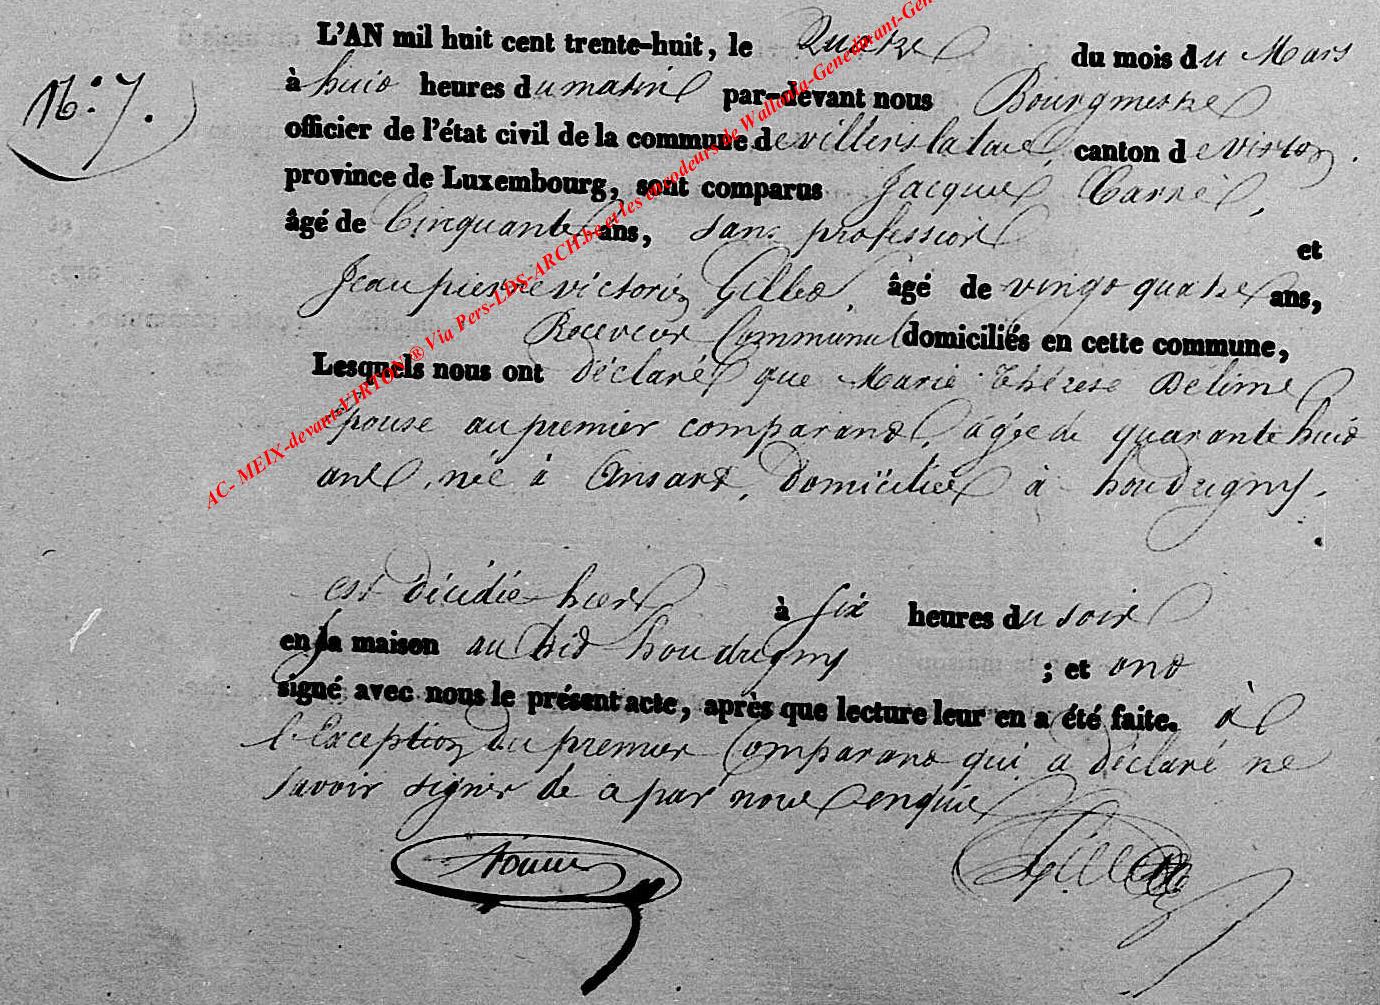 N°. 7.
L'AN mil huit cent trente-huit, le Quatre du mois du Mars
à huit heures du matin par-devant nous Bourgmestre
officier de l'état civil de la commune de villers la loue, canton de virton.
province de Luxembourg, sont comparus Jacques Carré,
âgé de Cinquante ans, sans profession et
Jean pierre victorin Gillet, âgé de vingt quatre ans,
Receveur Communal domiciliés en cette commune,
Lesquels nous ont déclaré que Marie Thérèse Delime
épouse au premier comparant, agée de quarante huit
ans, née à Ansart, domiciliée à houdrigny,
est décédée hier à six heures du soir
en sa maison au dit houdrigny ; et ont
signé avec nous le présent acte, après que lecture leur en a été faite. à
l'Exception du premier Comparant qui a déclaré ne
savoir signer de a par nous enquis
Gillet
AC- MEIX-devant-VIRTON ® Via Pers-LDS-ARCH.be et les encodeurs de Wallonia-Genedinant-Gen